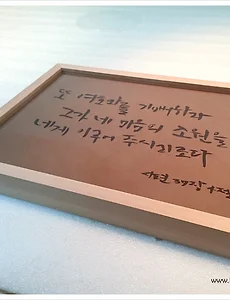 또 여호와를 기뻐하라
그가 네 마음의 소원을
네게 이루어 주시리로다
시편 37장 4절
www.